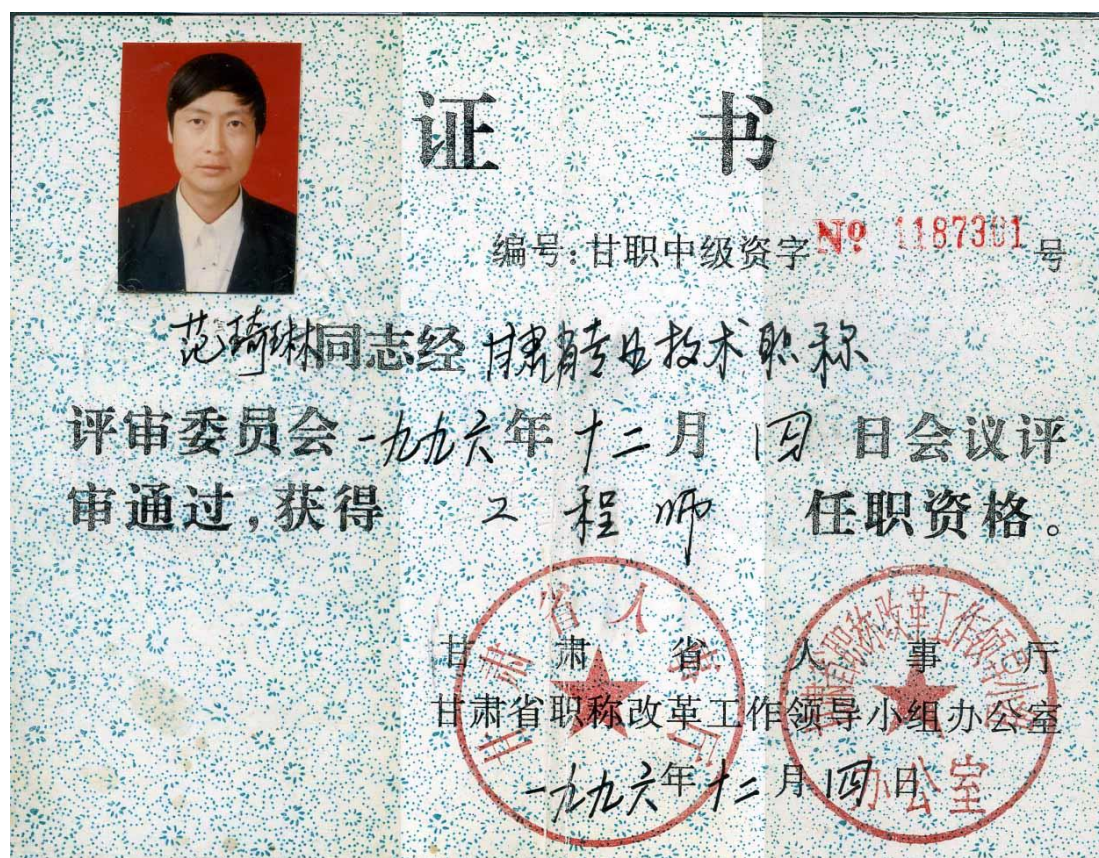 证 书
编号：甘职中级资字 № 1187301 号
范琦琳同志经 甘肃省专业技术职称
评审委员会 一九九六年 十二月 四 日会议评
审通过，获得 工程师 任职资格。
甘肃省人事厅
甘肃省职称改革工作领导小组办公室
一九九六年十二月四日
甘肃省人事厅
甘肃省职称改革工作领导小组
办公室